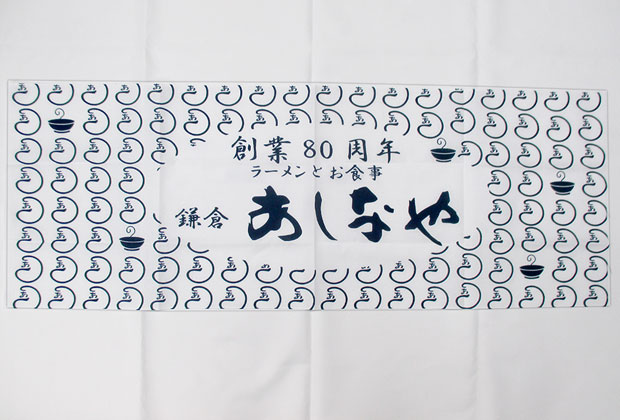 創業80周年
ラーメンとお食事
鎌倉 あしなや